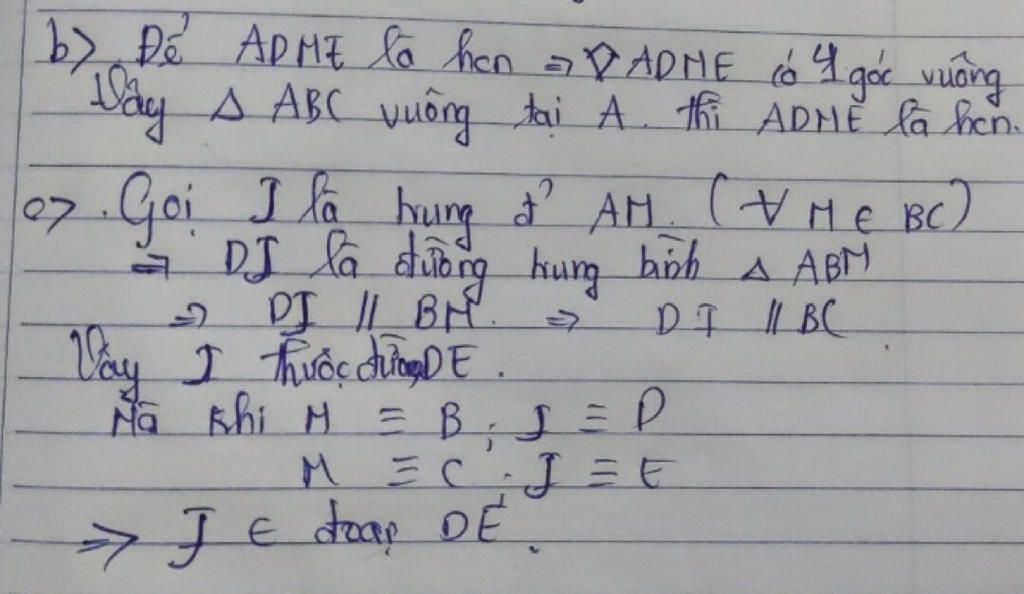 b) Để ADME là hcn => ▱ ADME có 4 góc vuông
Vậy Δ ABC vuông tại A. thì ADME là hcn.
c) Gọi I là trung đ' AM. (∀ M ∈ BC)
=> DI là đường trung bình Δ ABM
=> DI // BM. => DI // BC
Vậy I thuộc đường DE.
Mà khi M ≡ B; I ≡ D
M ≡ C; I ≡ E
=> I ∈ đoạn DE.